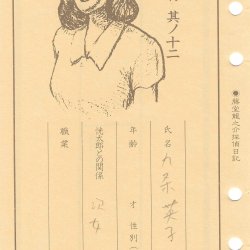 ●藤堂龍之介探偵日記
其ノ十二
氏名 九条 英子
年齢 才 性別（
恍太郎との関係 次女
職業